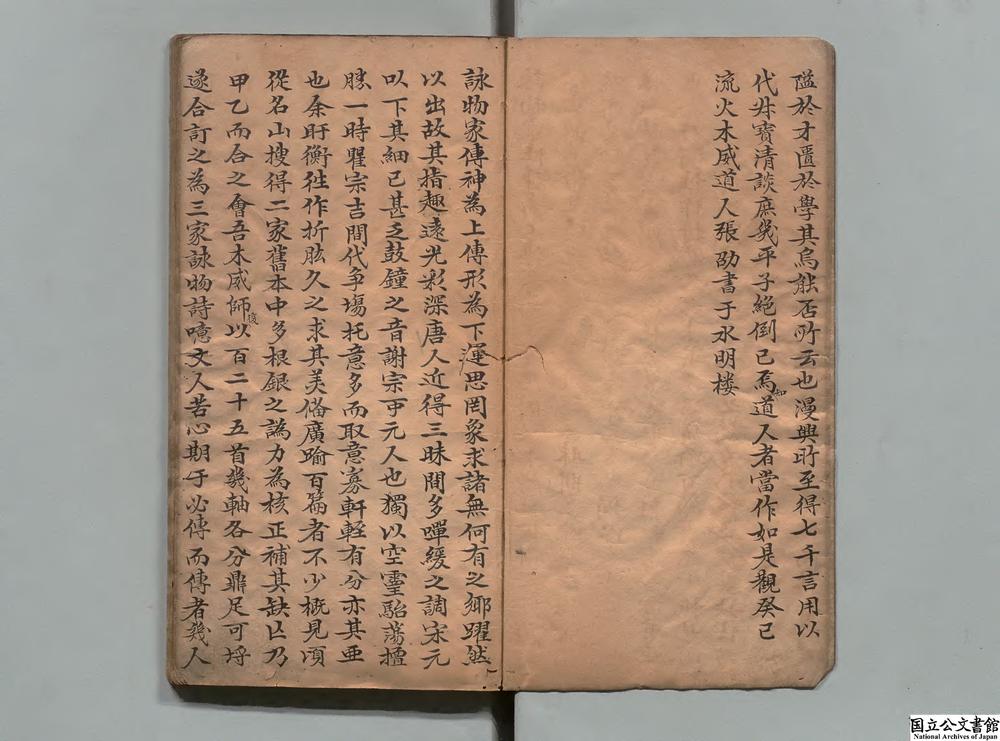 隘於才匱於學其烏能否所云也漫興所至得七千言用以
代塵寶清談庶幾平子絕倒已焉知道人者當作如是觀癸巳
流火木威道人張劭書于水明楼
詠物家傳神為上傳形為下運思罔象求諸無何有之鄉躍然
以出故其指趣遠光彩深唐人近得三昧間多嘽緩之調宋元
以下其細已甚乏鼓鐘之音謝宗可元人也獨以空靈駘蕩擅
勝一時瞿宗吉間代争場托意多而取意寡軒輊有分亦其亜
也余盱衡徃作折肱久之求其美俻廣踰百篇者不少概見頃
從名山搜得二家舊本中多根銀之譌力為核正補其缺亾乃
甲乙而合之會吾木威師復以百二十五首幾軸各分鼎足可埒
遂合訂之為三家詠物詩噫文人苦心期于必傳而傳者幾人
国立公文書館
National Archives of Japan